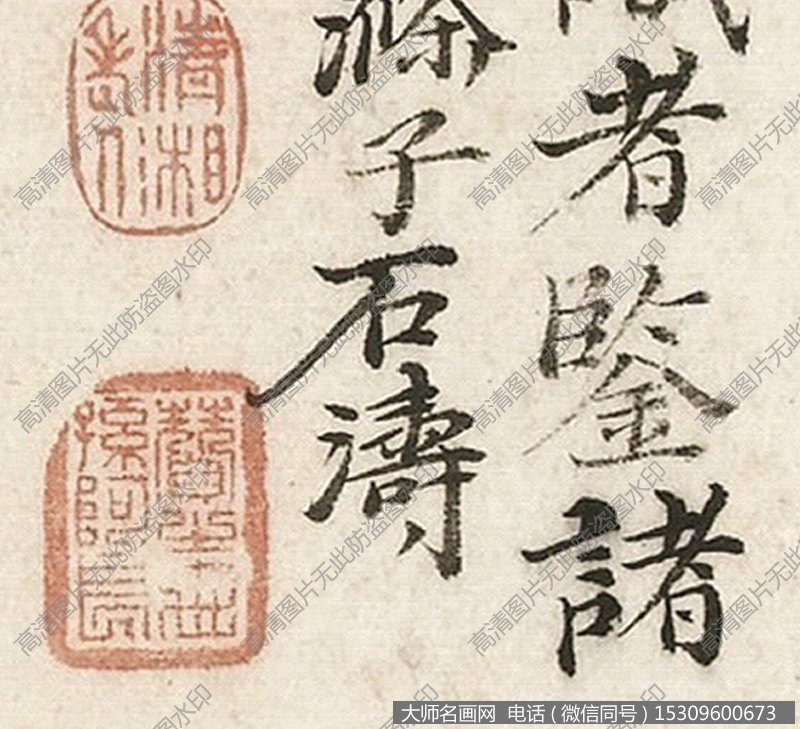 者鑒諸
滌子石濤
清湘
老人
高清图片无此防盗图水印
大师名画网 电话（微信同号）15309600673